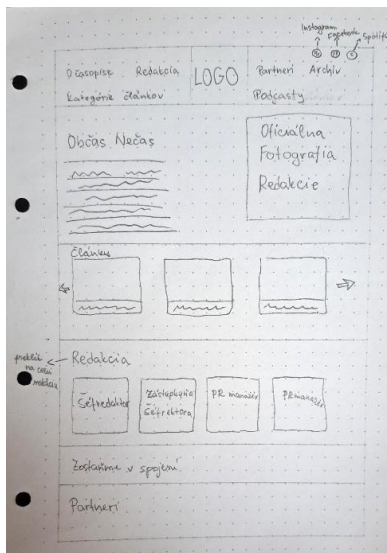 Instagram
Facebook
Spotify
O časopise Redakcia LOGO Partneri Archív
Kategórie článkov Podcasty
Občas Nečas
Oficiálna
Fotografia
Redakcie
Články
Redakcia
na celú
Šéfredaktor
Zástupkyňa
PR manažér
PR manažér
Zostaňme v spojení
Partneri